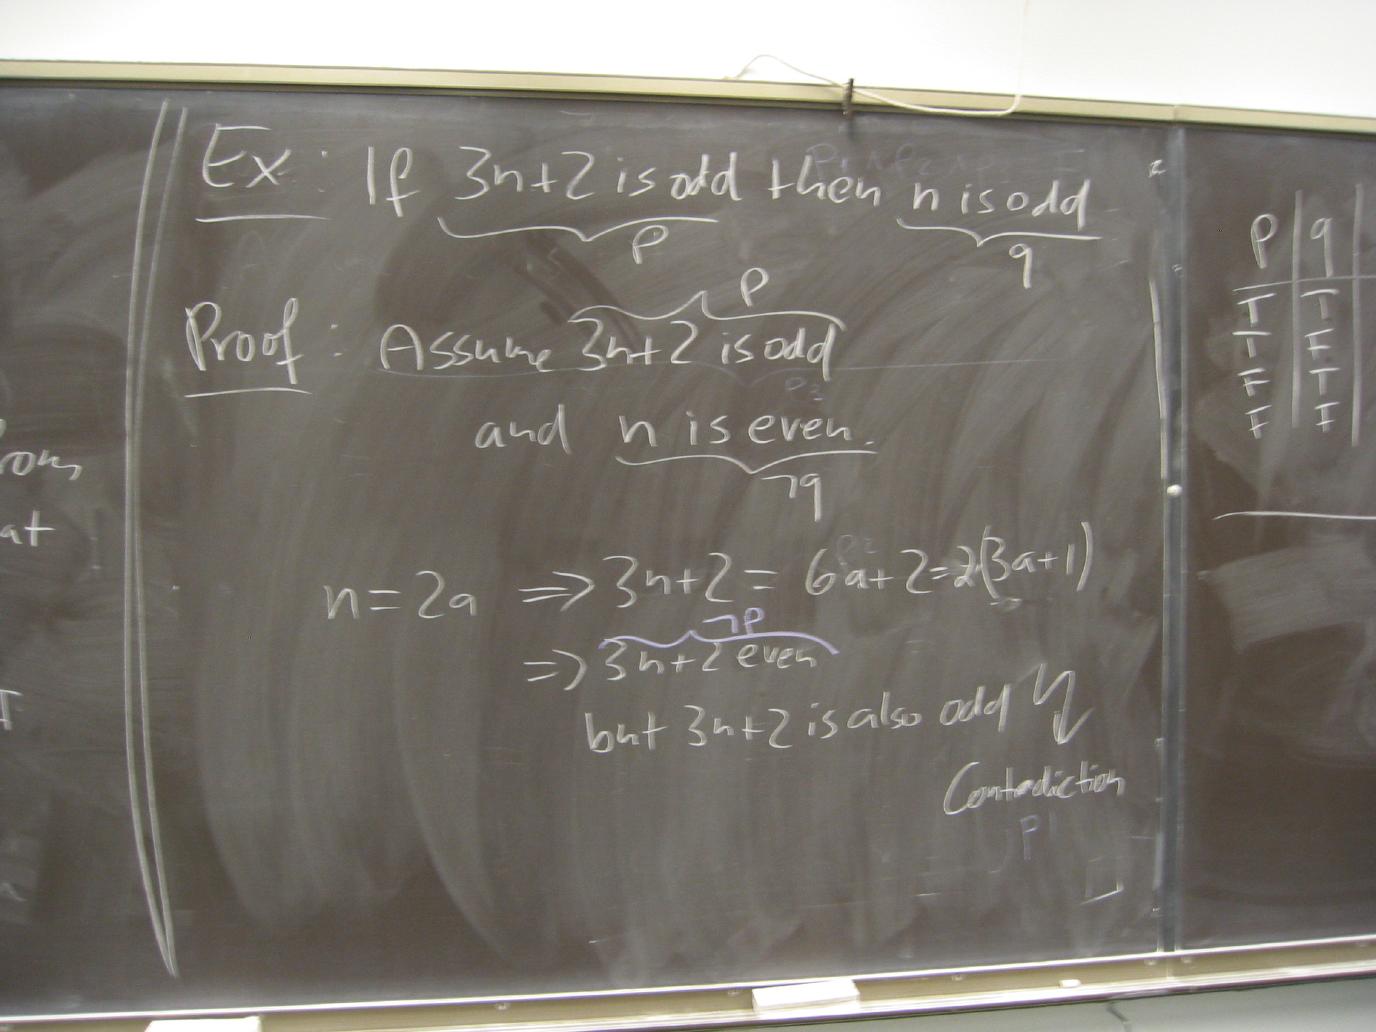 Ex: If 3n+2 is odd then n is odd
p q
p
Proof: Assume 3n+2 is odd
and n is even.
¬q
n=2a ⇒ 3n+2 = 6a+2=2(3a+1)
¬p
⇒ 3n+2 even
but 3n+2 is also odd
Contradiction
p q
T T
T F
F T
F F
at